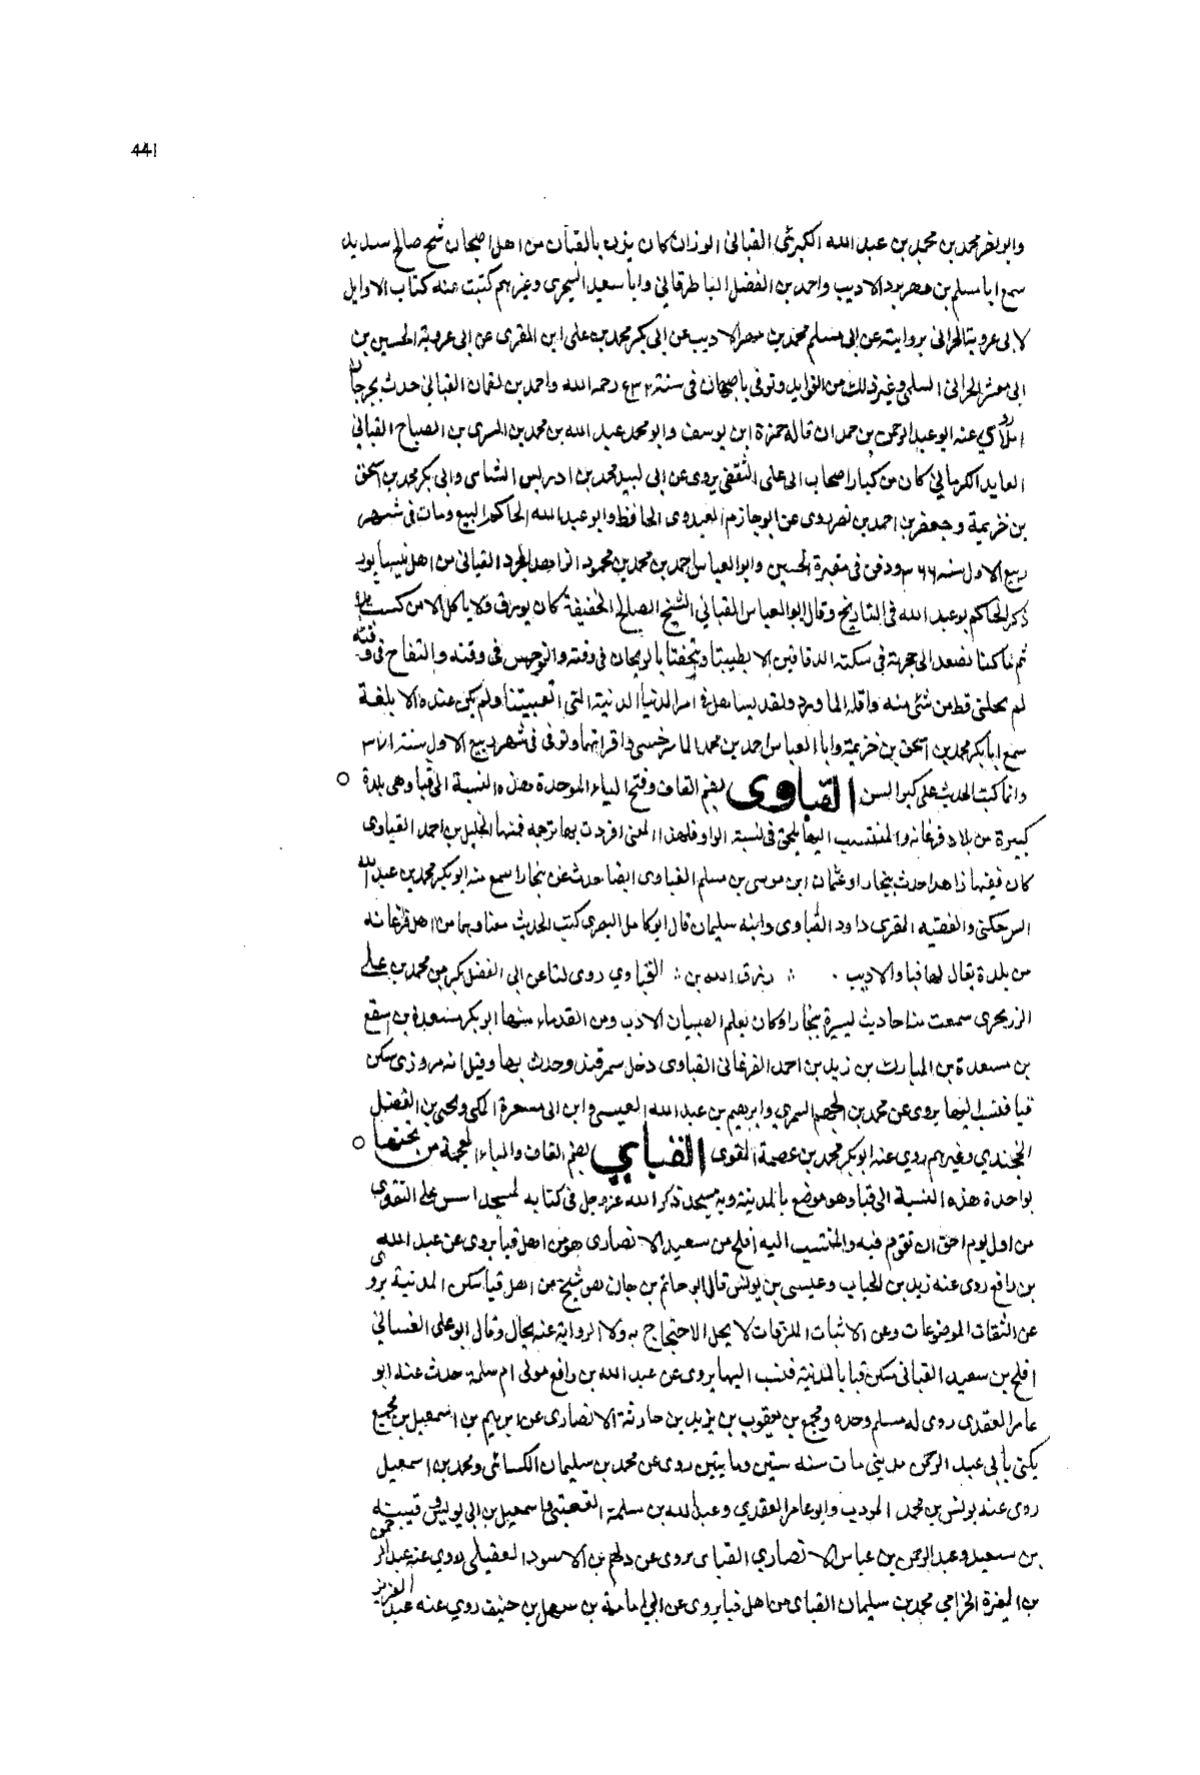 441
وابو نصر محمد بن محمد بن عبد الله الكبرىتى القبانى الوزان كان يزن بالقبان من اهل اصبهان شيخ صالح سديد
سمع ابا مسلم بن مهربرد الاديب واحمد بن الفضل الباطرقانى وابا سعيد السجرى وغيرهم كتبت عنه كتاب الاوايل
لابى عروبة الحرانى بروايته عن ابى مسلم محمد بن الاديب عن ابى بكر محمد بن على ابن المقرى عن ابى عروبة الحسين بن
ابى معشر الحرانى السلمى وغير ذلك من الفوايد وتوفى باصبهان فى سنة ٥٣٢ رحمه الله واحمد بن لقمان القبانى حدث بجرجان
املا روى عنه ابو عبد الرحمن بن حمدان قاله حمزة ابن يوسف وابو محمد عبد الله بن محمد بن السرى بن الصباح القبانى
العابد الكرمانى كان من كبار اصحاب ابى على الثقفى يروى عن ابى لبيد محمد بن ادريس الشامى وابى بكر محمد بن اسحق
بن خزيمة وجعفر بن احمد بن نصر روى عن ابو حازم العبدوى الحافظ وابو عبد الله الحاكم البيع ومات فى شهر
ربيع الاول سنه ٣٦٦ ودفن فى مقبرة الحسين وابو العباس احمد بن محمد بن محمود الزاهد المجرد القبانى من اهل نيسابور
ذكر الحاكم بو عبد الله فى التاريخ وقال ابو العباس القبانى الشيخ الصالح كان يورق ولا ياكل الا من كسب يده
ثم ناكنا نصعد الى حجرته فى سكته الدقاقين الا يطيبنا ويتحفنا بالريحان فى وقته والنرجس فى وقته والتفاح فى وقته
لم يخلنى قط من شئ منه واقله الماورد ولقد يساهل فى امر الدنيا الدنية التى اتعبتنا ولم يكن عنده الا بلغة
سمع ابا بكر محمد بن اسحق بن خزيمة وابا العباس احمد بن محمد الماسرخسى واقرانهما وتوفى فى شهر ربيع الاول سنة ٣٧١
وانما كتب الحديث على كبر السن القباوى بضم القاف وفتح الباء الموحدة هذه النسبة الى قبا وهى بلدة
كبيرة من بلاد فرغانه والمنتسب اليها يلحق فى نسبته الواو فلهذا المعنى افردت بها ترجمه فمنها الخليل بن احمد القباوى
كان فقيها زاهدا حدث ببخارا وعثمان ابن موسى بن مسلم القباوى ايضا حدث عن بخارا سمع منه ابو بكر محمد بن عبد الله
السرخكتى والفقيه المقرى داود القباوى وابنه سليمان قال ابو كامل البصرى كتب الحديث معنا وهما من اهل فرغانه
من بلدة يقال لها قبا والاديب رزق الله بن القباوي روى لنا عن ابى الفضل بكر بن محمد بن على
الزرنجرى سمعت منه احاديث يسيرة ببخارا وكان يعلم الصبيان الادب ومن القدماء منها ابو بكر مسعدة بن اسقع
بن مسعدة بن المبارك بن زيد بن احمد الفرغانى القباوى دخل سمرقند وحدث بها وقيل انه مروزى سكن
قبا فنسب اليها يروى عن محمد بن الجهم السمري وابرهيم بن عبد الله العبسى وابن ابى مسرة المكى ويحيى بن الفضل
الخجندي وغيرهم روي عنه ابو بكر محمد بن عصمة المقوى القبايي بضم القاف والباء المعجمة من تحتها
بواحدة هذه النسبة الى قبا وهو موضع بالمدينة وبه مسجد ذكر الله عز وجل فى كتابه لمسجد اسس على التقوى
من اول يوم احق ان تقوم فيه والمنتسب اليه افلح بن سعيد الانصارى هو من اهل قبا يروى عن عبد الله
بن رافع روى عنه زيد بن الحباب وعيسى بن يونس قال ابو حاتم بن حبان هو شيخ من اهل قبا سكن المدينة يروى
عن الثقات الموضوعات وعن الاثبات الملزقات لا يحل الاحتجاج به ولا الرواية عنه بحال وقال ابو على الغسانى
افلح بن سعيد القبانى سكن قبا بالمدينة فنسب اليها يروى عن عبد الله بن رافع مولى ام سلمة حدث عنه ابو
عامر العقدى روى له مسلم وحده ومجمع بن يعقوب بن يزيد بن حارثة الانصارى عن ابرهيم بن اسمعيل بن مجمع
يكنى بابى عبد الرحمن مدينى مات سنه ستين ومايتين روى عن محمد بن سليمان الكسائى ومحمد بن اسمعيل
روى عنه يونس بن محمد المودب وابو عامر العقدي وعبد الله بن سلمة القعنبى واسمعيل بن ابى يونس قتيبه
بن سعيد وعبد الرحمن بن عباس الانصاري القباى يروى عن دلهم بن الاسود العقيلى روي عنه عبد الرحمن
بن المغيرة الخزامى محمد بن سليمان القباى من اهل قبا يروى عن ابى امامة بن سهل بن حنيف روي عنه عبد العزيز